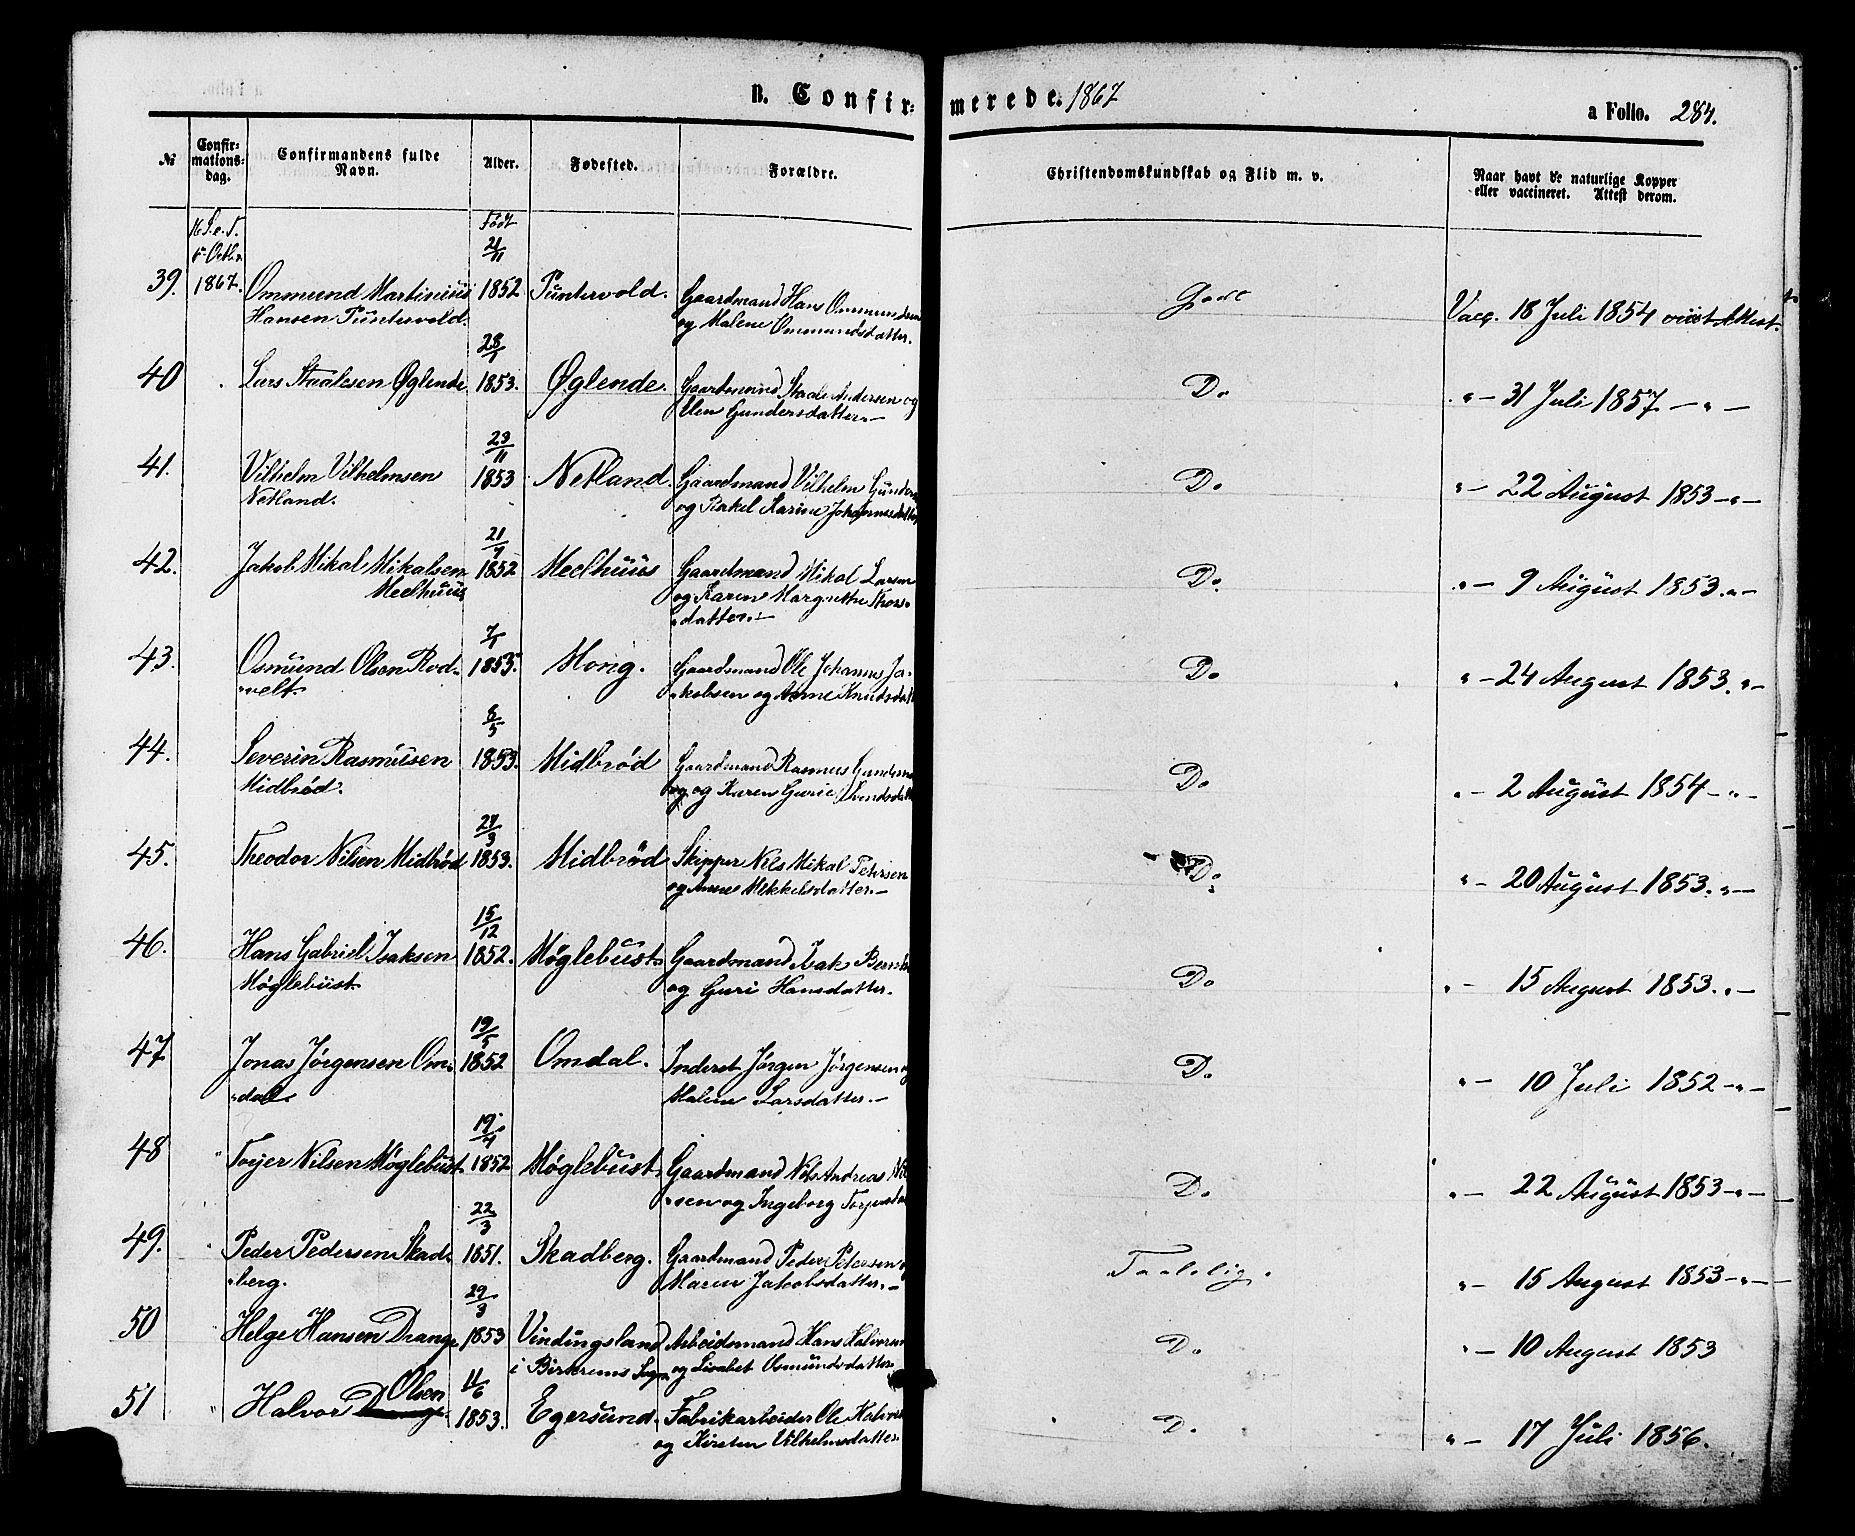 B. Confir- merede. 1867
a Folio. 284.
№ Confir- mations- dag. Confirmandens fulde Navn. Alder. Fødested. Forældre. Christendomskundskab og Flid m. v. Naar havt de naturlige Kopper eller vaccineret. Attest derom.
16 S. e. T. Født
1867. 21/11
39. Ommund Martinius 1852 Puntervold. Gaardmand Hans Ommundsen Godt Vacc. 18 Juli 1854 viist Attest.
Hansen Puntervold. og Malene Ommundsdatter.
28/1
40 Lars Staalesen Øglende 1853. Øglende. Gaardmand Staale Andersen og Do 〃 – 31 Juli 1857 – 〃 –
Elen Gundersdatter. –
23/11
41. Vilhelm Vilhelmsen 1853 Netland. Gaardmand Vilhelm Do 〃 – 22 August 1853 – 〃 –
Netland. og Rakel Karine Johannesdatter
21/7
42. Jakob Mikal Mikalsen 1852 Meelhuus Gaardmand Mikal Larsen Do. 〃 – 9 August 1853. 〃 –
Meelhuus og Karen Margrethe
datter. –
7/1
43. Osmund Olsen Rod- 1853. Mong. Gaardmand Ole Johannes Ja- Do 〃 – 24 August 1853. 〃 –
velt. kobsen og Anne Knudsdatt
8/5
44. Severin Rasmusen 1853. Midbrød Gaardmand Rasmus Do 〃 – 2 August 1854 – 〃 –
Midbrød. og Karen Gurie
27/3
45. Theodor Nilsen Midbrød 1853. Midbrød Skipper Nels Mikal Petersen Do 〃 – 20 August 1853. 〃 –
og Anne Mikkelsdatter. –
15/12
46. Hans Gabriel Isaksen 1852. Møglebust Gaardmand Isak Do 〃 – 15 August 1853. 〃 –
Møglebust. og Guri Hansdatter.
19/5
47. Jonas Jørgensen Om- 1852 Omdal. Inderst Jørgen Jørgensen og Do. 〃 – 10 Juli 1852 – 〃 –
dal. Malene Larsdatter. –
19/4
48 Torjer Nilsen Møglebust 1852 Møglebust. Gaardmand Nils Andreas Nil Do. 〃 – 22 August 1853 – 〃 –
sen og Ingeborg
22/3
49. Peder Pedersen Skad- 1851. Skadberg. Gaardmand Peder Petersen og Taalelig. 〃 – 15 August 1853 – 〃 –
berg. Maren Jakobsdatter. –
29/3
50 Helge Hansen Drange 1853 Vindingsland Arbeidsmand Hans Halvorsen Do 〃 – 10 August 1853
i Birkrems Sogn og Lisabet Osmundsdatter
Olsen 11/6
51 Halvor Drange. 1853. Egersund. Fabrikarbeider Ole Halvors Do. 〃 – 17 Juli 1856.
og Kirsten Vilhelmsdatter